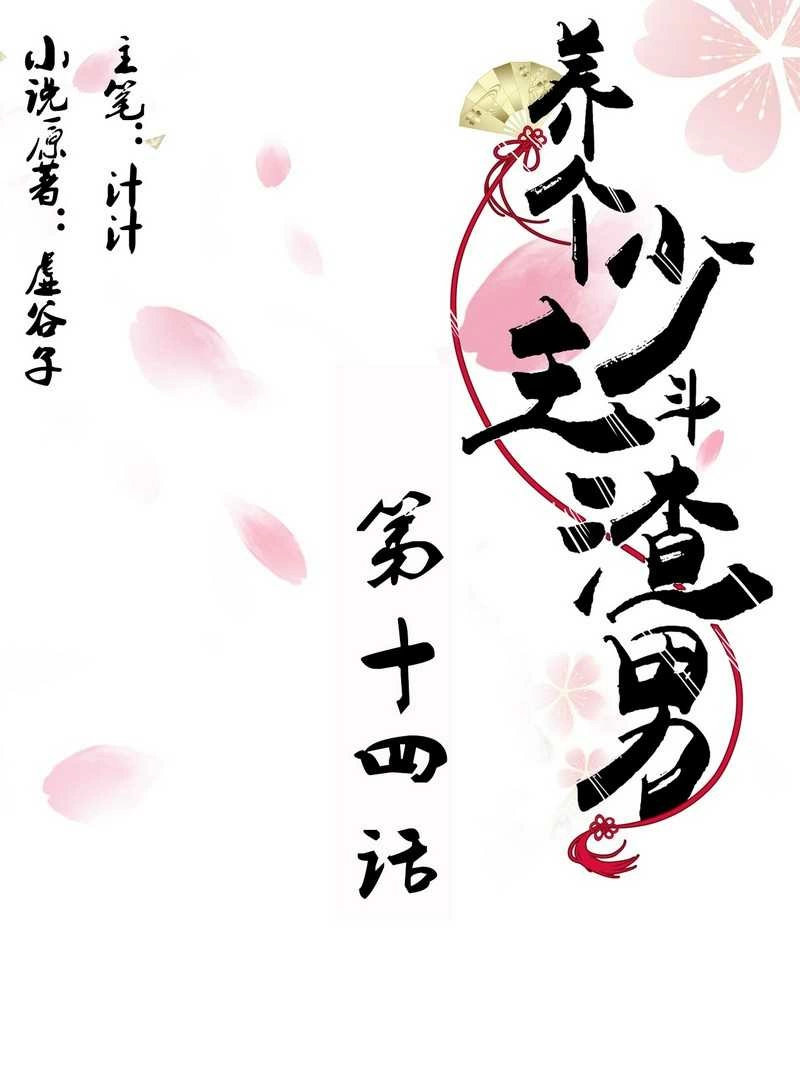 养个少主斗渣男
第十四话
主笔：汁汁
小说原著：虚谷子